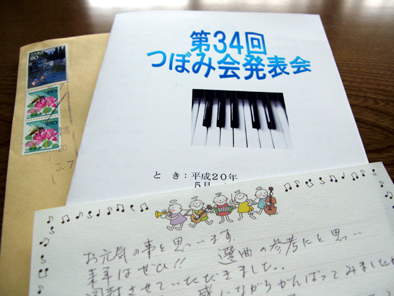 第34回
つぼみ会発表会
とき：平成20年
5月
お元気の事と思います。
来年はぜひ!! 選曲の参考にと思い
同封させていただきました。
感じながらがんばってみましたが